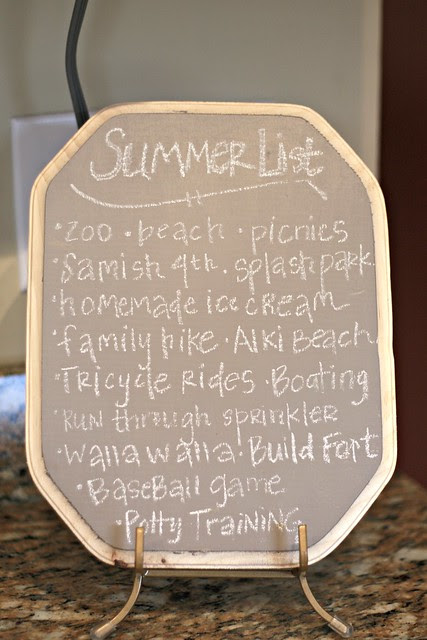 Summer List
· zoo · beach · picnics
· Samish 4th · splash park
· homemade ice cream
· family hike · Alki Beach
· Tricycle Rides · Boating
· Run through sprinkler
· Walla Walla · Build Fort
· Baseball game
· Potty Training